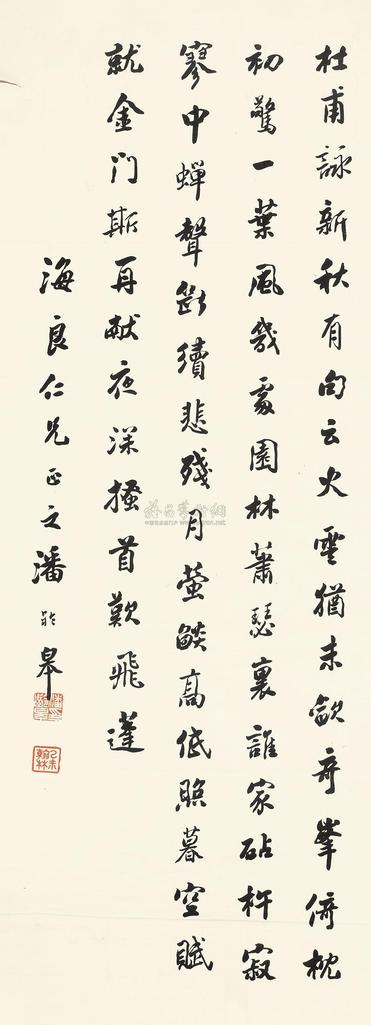 杜甫詠新秋有句云火雲猶未歛奇峯倚枕
初驚一葉風幾處園林蕭瑟裏誰家砧杵寂
寥中蟬聲斷續悲殘月螢燄高低照暮空賦
就金門斯再献夜深搔首歎飛蓬
海良仁兄正之潘齡皋
乙未翰林